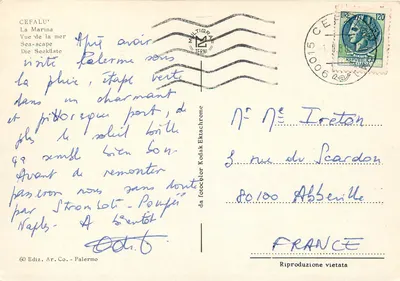 CEFALU'
La Marina
Vue de la mer
Sea-scape
Die Seeküste
Après avoir
visité Palerme sous
la pluie, étape verte
dans un charmant
et pittoresque port, de
plus le soleil brille
ça semble bien bon.
Avant de remonter
passerons nous sans doute
par Stromboli - Pompéi
Naples. A bientôt
60 Ediz. Ar. Co. - Palermo
da fotocolor Kodak Ektachrome
Riproduzione vietata
90015 CEFA
Mr Me Ireton
3 rue du Scardon
80100 Abbeville
FRANCE